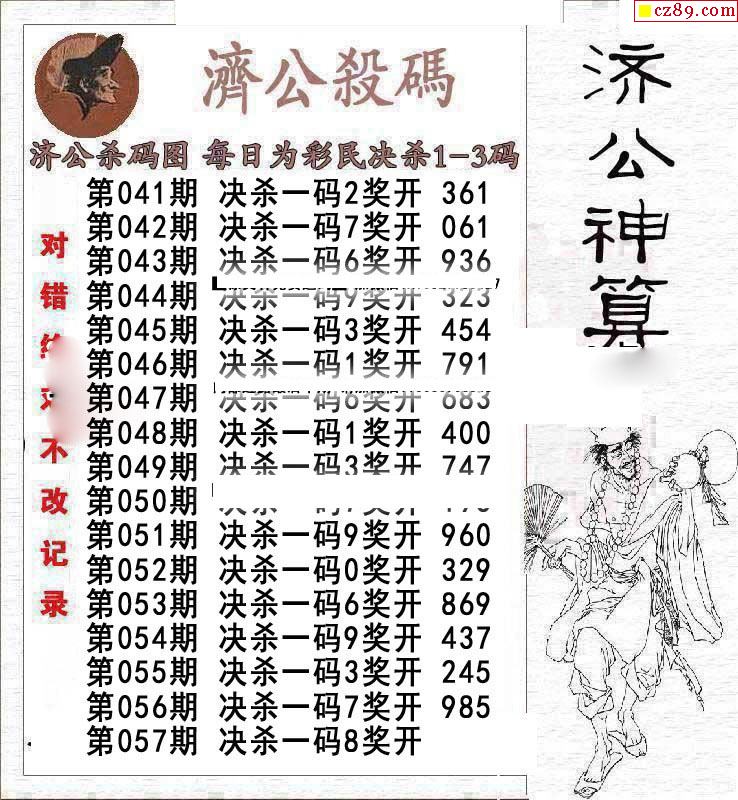 cz89.com
濟公殺碼
济公杀码图 每日为彩民决杀1-3码
第041期 决杀一码2奖开 361
第042期 决杀一码7奖开 061
第043期 决杀一码6奖开 936
第044期 决杀一码9奖开 323
第045期 决杀一码3奖开 454
第046期 决杀一码1奖开 791
第047期 决杀一码6奖开 683
第048期 决杀一码1奖开 400
第049期 决杀一码3奖开 747
第050期
第051期 决杀一码9奖开 960
第052期 决杀一码0奖开 329
第053期 决杀一码6奖开 869
第054期 决杀一码9奖开 437
第055期 决杀一码3奖开 245
第056期 决杀一码7奖开 985
第057期 决杀一码8奖开
对错
不改记录
济公神算